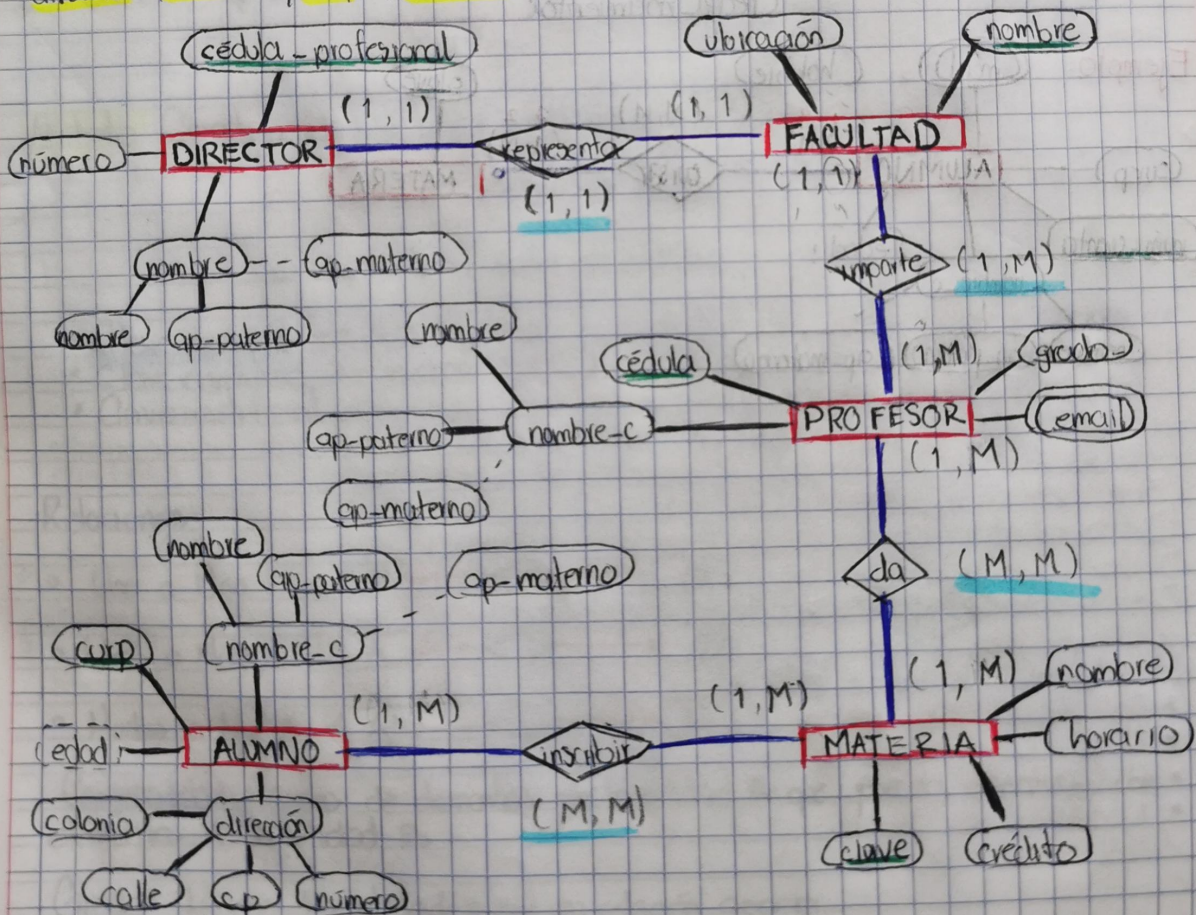 cédula_profesional
ubicación
nombre
(1,1)
(1,1)
número
DIRECTOR
representa
FACULTAD
(1,1)
(1,1)
nombre
ap-materno
imparte
(1,M)
nombre
ap-paterno
nombre
cédula
(1,M)
grado
ap-paterno
nombre-c
PROFESOR
email
(1,M)
ap-materno
nombre
ap-paterno
ap-materno
da
(M,M)
curp
nombre-c
(1,M)
nombre
(1,M)
(1,M)
edad
ALUMNO
inscribir
MATERIA
horario
(M,M)
colonia
dirección
clave
crédito
calle
cp
número